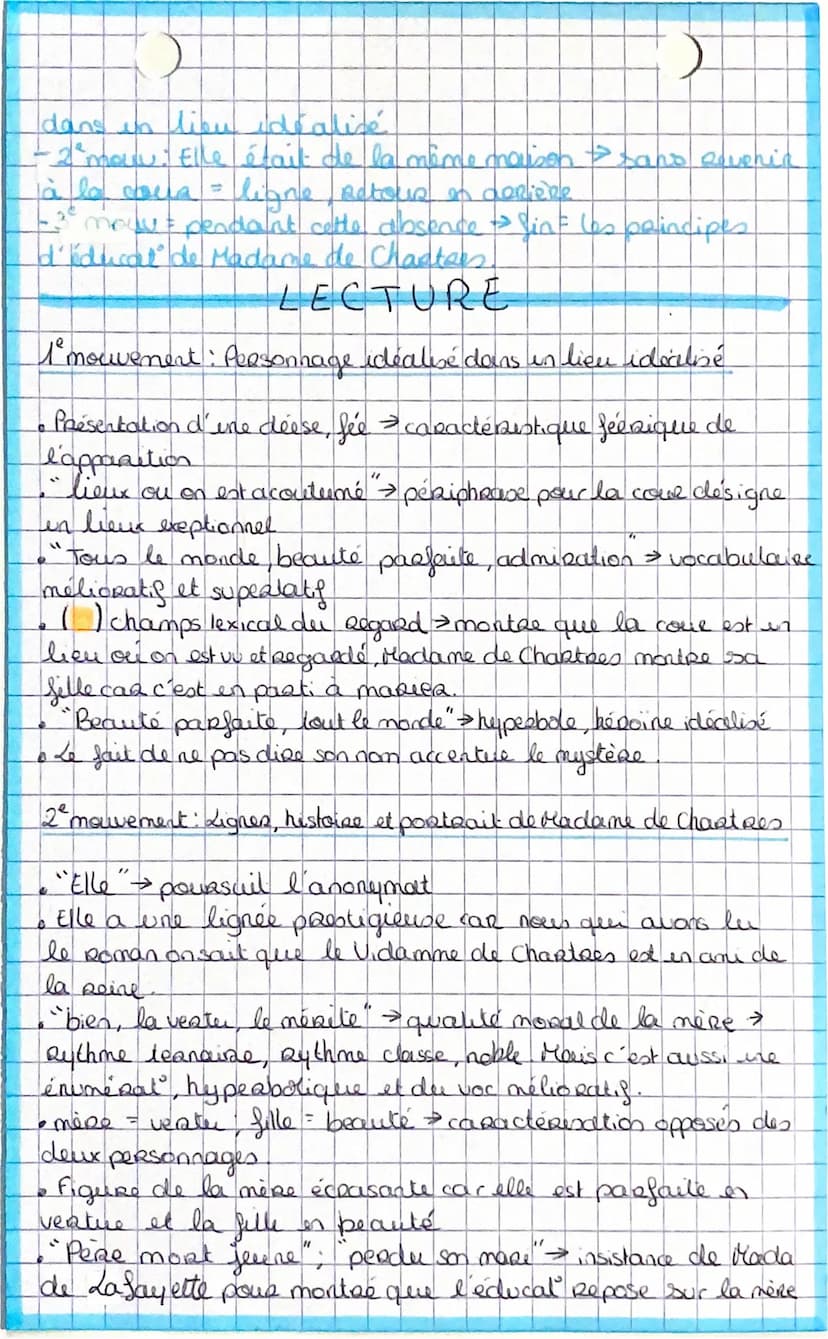 dans un lieu idéalisé
- 2e mouv : Elle était de la même maison → sans revenir
à la cour = ligne, retour en arrière
- 3e mouv = pendant cette absence → fin = les principes
d'éducat° de Madame de Chartres.
LECTURE
1e mouvement : Personnage idéalisé dans un lieu idéalisé
• Présentation d'une déese, fée → caractéristique féérique de
l'apparition
• "lieux ou on est acoutumé" → périphrase pour la cour désigne
un lieux exeptionnel
• "Tous le monde, beauté parfaite, admiration" → vocabulaire
mélioratif et superlatif
• ( ) champs lexical du regard → montre que la cour est un
lieu où on est vu et regardé, Madame de Chartres montre sa
fille car c'est un parti à marier.
• "Beauté parfaite, tout le monde" → hyperbole, héroïne idéalisé
• Le fait de ne pas dire son nom accentue le mystère.
2e mouvement : Lignes, histoire et portrait de Madame de Chartres
• "Elle" → poursuit l'anonymat
• Elle a une lignée prestigieuse car nous qui avons lu
le roman on sait que le Vidamme de Chartres est un ami de
la reine.
• "bien, la vertu, le mérite" → qualité moral de la mère →
Rythme ternaire, rythme classe, noble. Mais c'est aussi une
énumérat°, hyperbolique et du voc mélioratif.
• mère = vertu ; fille = beauté → caractérisation opposés des
deux personnages.
• Figure de la mère écrasante car elle est parfaite en
vertue et la fille en beauté
• "Père mort jeune" ; "perdu son mari" → insistance de Mada
de Lafayette pour montré que l'éducat° repose sur la mère